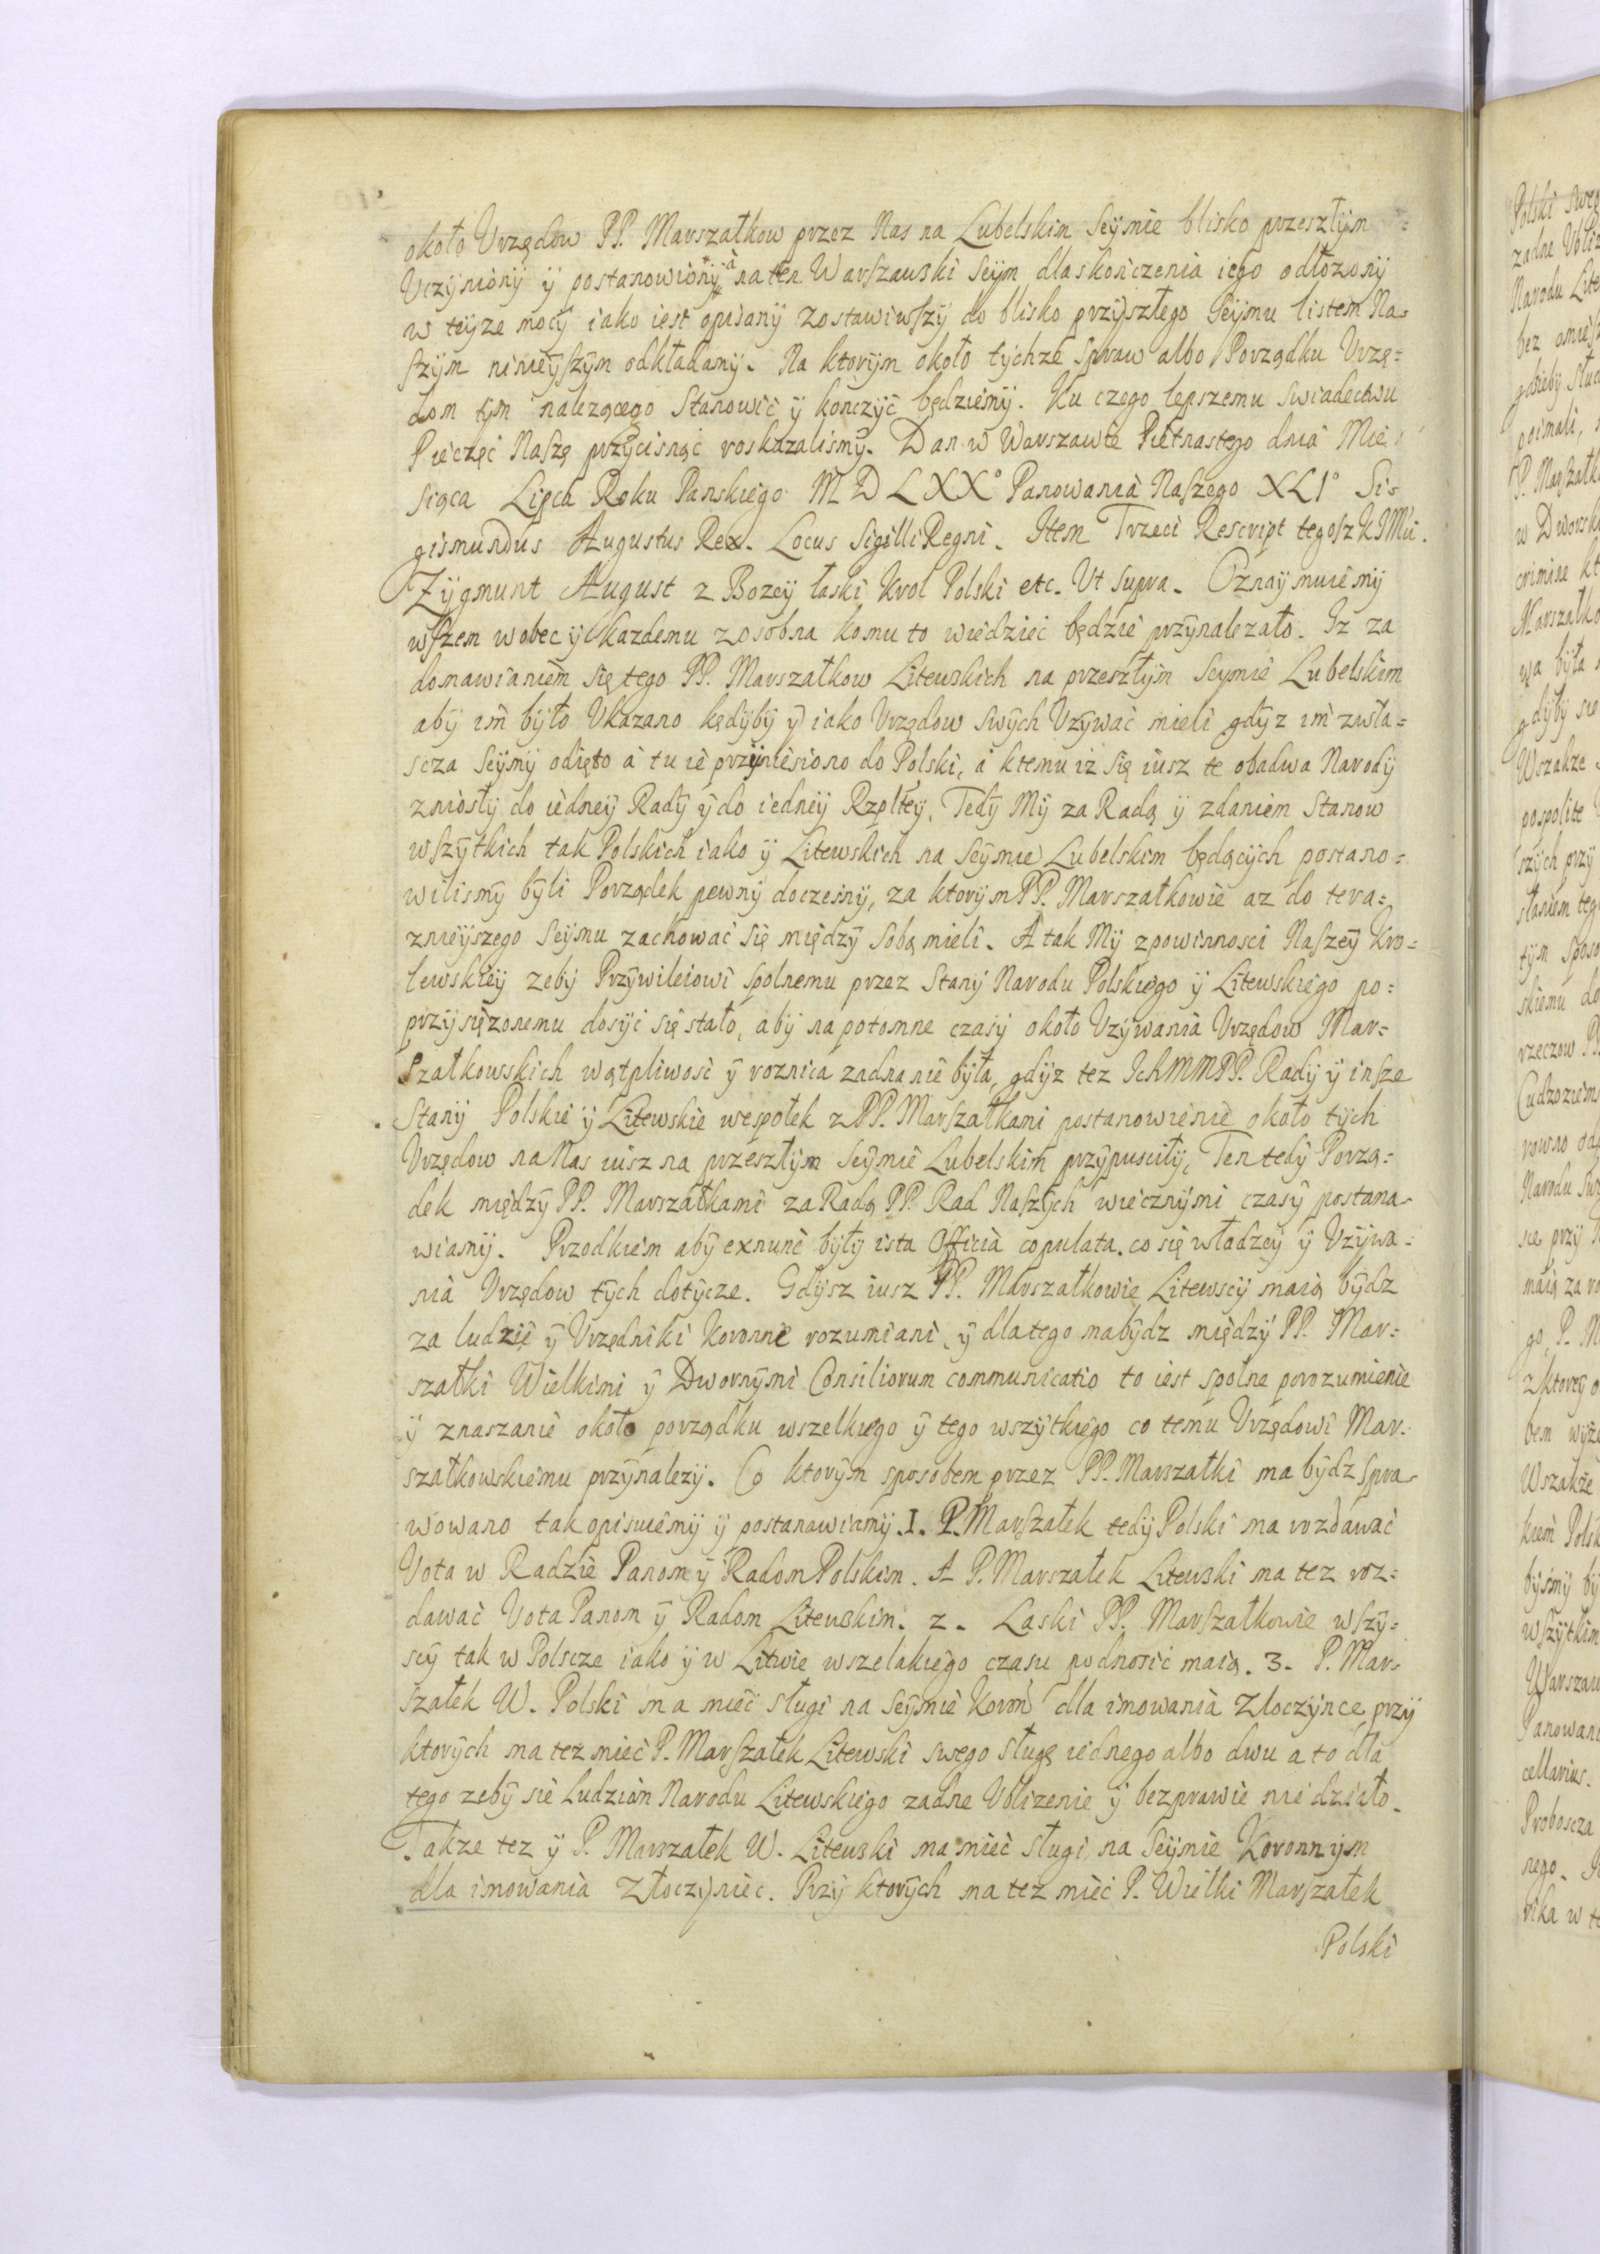 około Vrzędow PP. Marszałkow przez Nas na Lubelskim Seymie blisko przeszłym =
Vczyniony y postanowiony à na ten Warszawski Seym dla skończenia iego odłozony
w teyze mocy iako iest opisany zostawiwszy do blisko przyszłego Seymu listem Na=
szym ninieyszym odkładamy. Na ktorym około tychze spraw albo Porządku Vrzę=
dom tym nalezącego Stanowić y konczyć będziemy. Ku czego lepszemu swiadectwu
Pieczęć Naszę przycisnąć roskazalismy. Dan w Warszawie Pietnastego dnia Mie
siąca Lipca Roku Panskiego MDLXX° Panowania Naszego XLI° Si=
gismundus Augustus Rex. Locus Sigilli Regni. Item Trzeci Rescript tegosz KJMci.
Zygmunt August z Bozey łaski Krol Polski etc. Vt supra. Oznaymuiemy
wszem wobec y kazdemu zosobna komu to wiedzieć będzie przynalezało. Iz za
domawianiem się tego PP. Marszałkow Litewskich na przeszłym Seymie Lubelskim
aby im było Vkazano kędyby y iako Vrzędow swych Vzywać mieli gdyz im zwła=
scza Seymy odięto à tu ie przyniesiono do Polski, à ktemu iz się iusz te obadwa Narody
zniosły do iedney Rady y do iedney Rzpltey, Tedy My za Radą y zdaniem Stanow
wszytkich tak Polskich iako y Litewskich na Seymie Lubelskim będących postano=
wilismy byli Porządek pewny doczesny, za ktorym PP. Marszałkowie az do tera=
znieyszego Seymu zachować się między sobą mieli. A tak My z powinnosci Naszey Kro=
lewskiey zeby Przywileiowi spolnemu przez Stany Narodu Polskiego y Litewskiego po=
przysięzonemu dosyć się stało, aby na potomne czasy około Vzywania Vrzędow Mar=
szałkowskich wątpliwosć y roznica zadna nie była, gdyz tez Ich MM PP. Rady y insze
Stany Polskie y Litewskie wespołek z PP. Marszałkami postanowienie około tych
Vrzędow na Nas iusz na przeszłym Seymie Lubelskim przypusciły, Ten tedy Porzą=
dek między PP. Marszałkami za Radą PP. Rad Naszych wiecznymi czasy postana=
wiamy. Przodkiem aby exnunc były ista Officia copulata. co się władzey y Vzywa=
nia Vrzędow tych dotycze. Gdysz iusz PP. Marszałkowie Litewscy maią bydz
za ludzie y Vrzędniki Koronne rozumiani, y dlatego ma bydz między PP. Mar=
szałki Wielkimi y Dwornymi Consiliorum communicatio to iest spolne porozumienie
y znaszanie około porządku wszelkiego y tego wszytkiego co temu Vrzędowi Mar=
szałkowskiemu przynalezy. Co ktorym sposobem przez PP. Marszałki ma bydz spra=
wowano tak opisuiemy y postanawiamy. 1. P. Marszałek tedy Polski ma rozdawać
Vota w Radzie Panom y Radom Polskim. A P. Marszałek Litewski ma tez roz=
dawać Vota Panom y Radom Litewskim. 2. Laski PP. Marszałkowie wszy=
scy tak w Polscze iako y w Litwie wszelakiego czasu podnosić maią. 3. P. Mar=
szałek W. Polski ma mieć sługi na Seymie Koron dla imowania złoczynce, przy
ktorych ma tez mieć P. Marszałek Litewski swego sługę iednego albo dwu a to dla
tego zeby sie ludziom Narodu Litewskiego zadne Vblizenie y bezprawie nie działo.
Takze tez y P. Marszałek W. Litewski ma mieć sługi na Seymie Koronnym
dla imowania złoczyniec. Przy ktorych ma tez mieć P. Wielki Marszałek
Polski